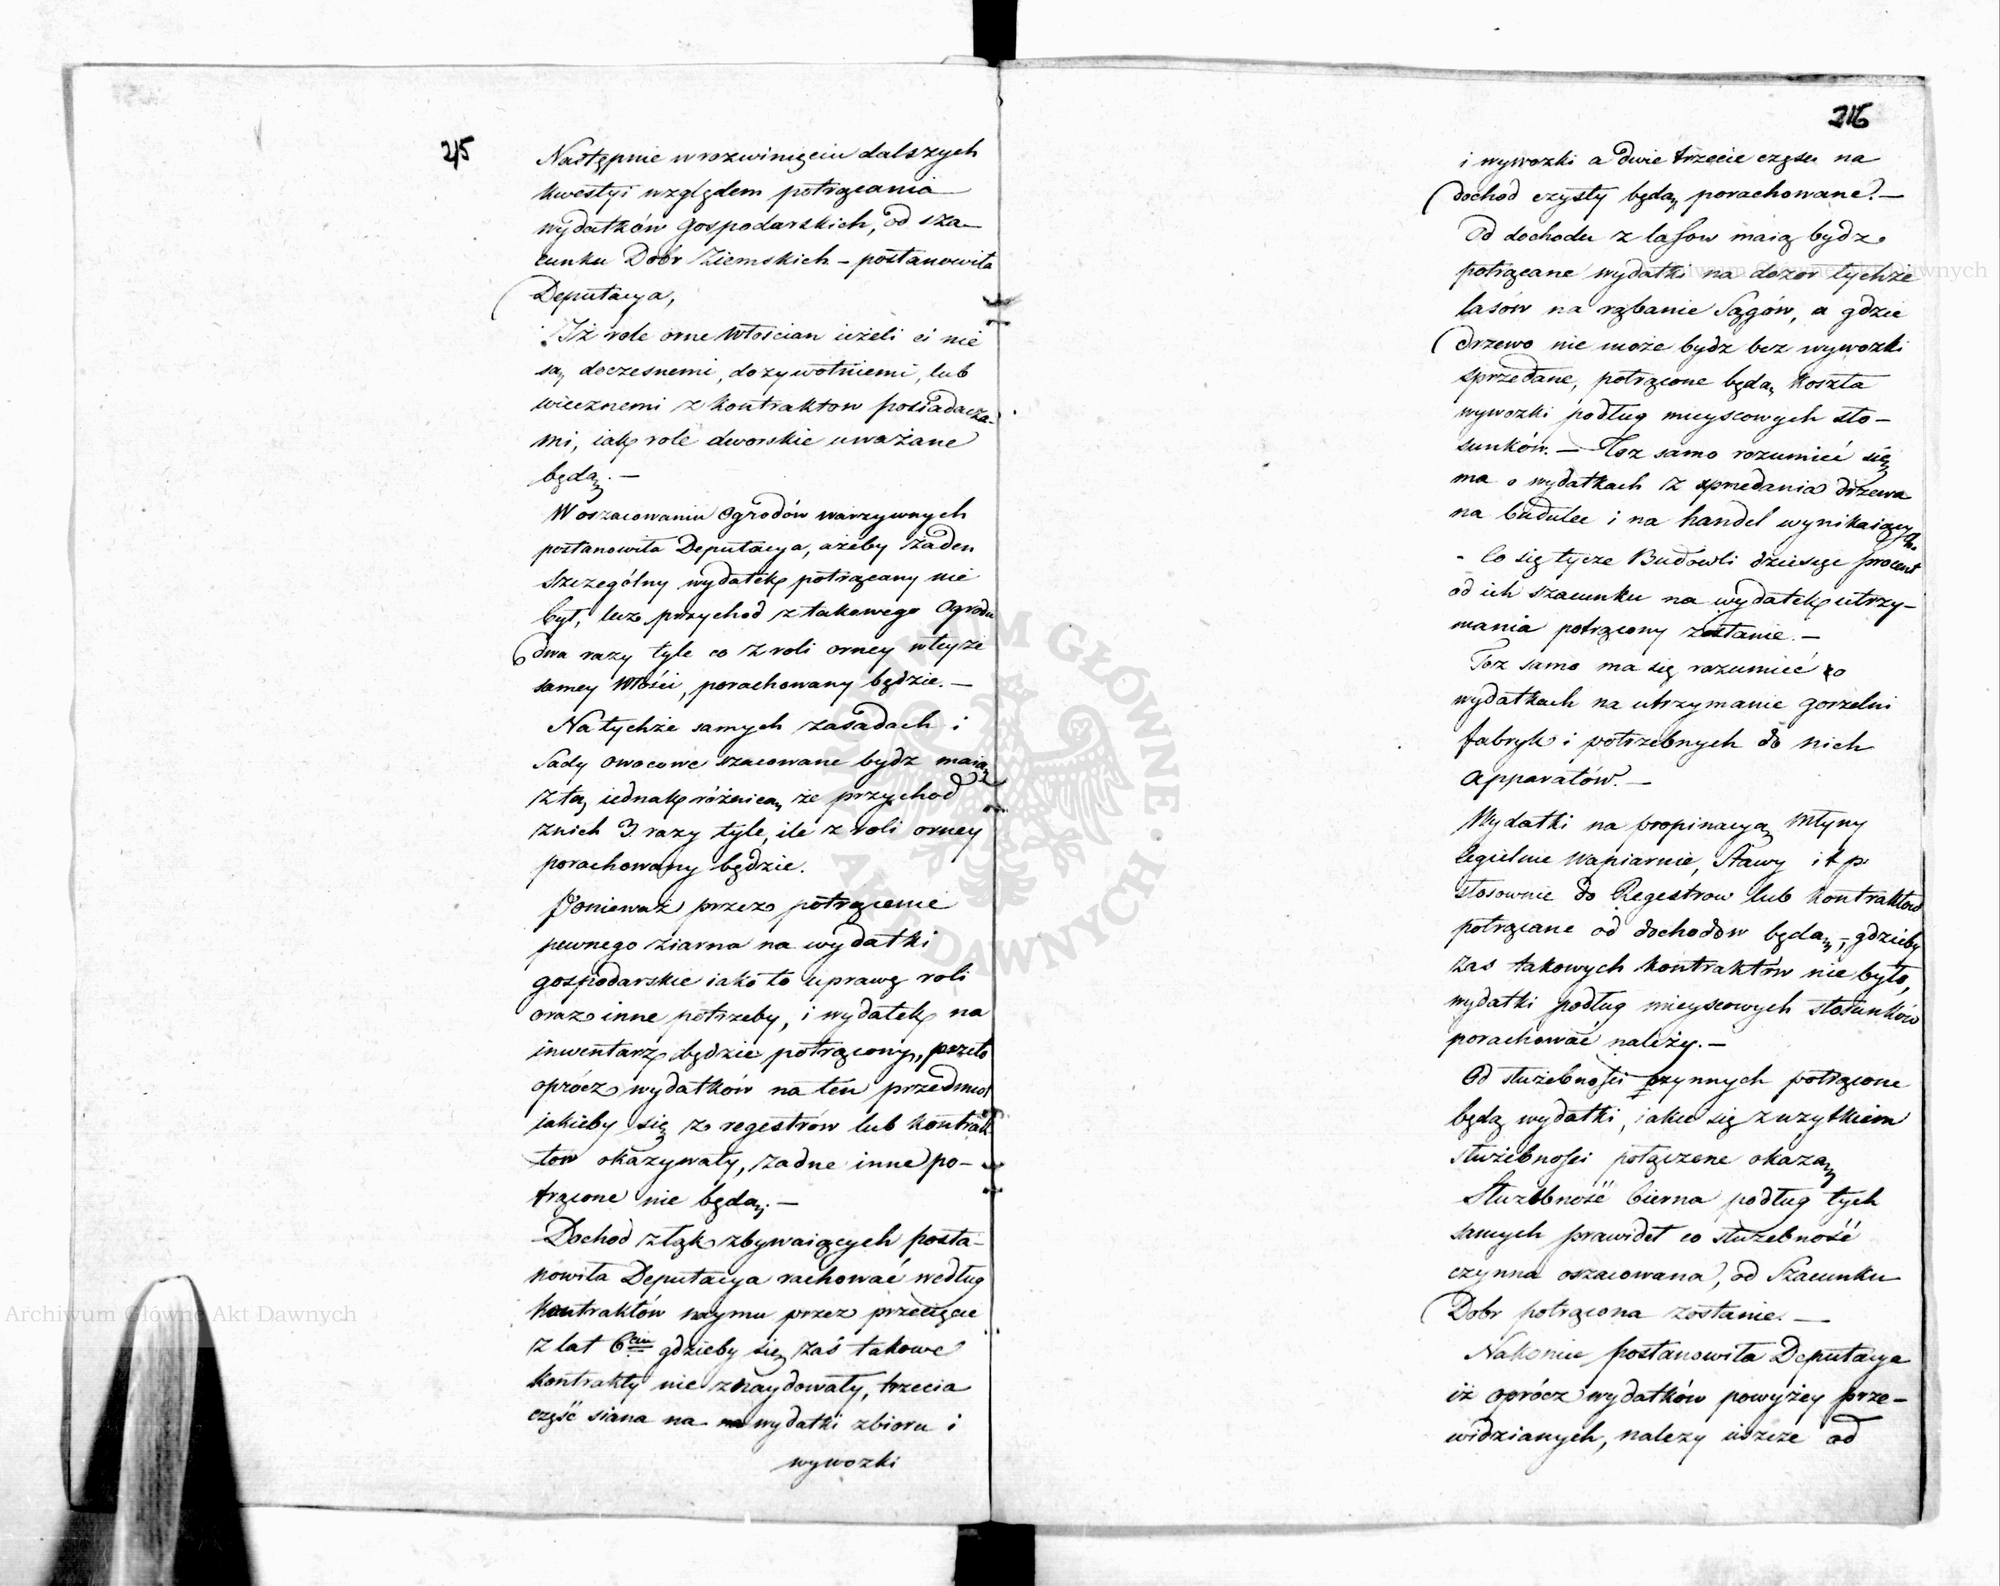 215
Następnie w rozwinięciu dalszych
kwestyi względem potrącania
wydatków gospodarskich, od sza-
cunku Dóbr Ziemskich – postanowiła
Deputacya,
Iż role orne Włościan ieżeli ci nie
są doczesnemi, dożywotniemi, lub
wiecznemi z kontraktow posiadacza-
mi, iak role dworskie uważane
będą. –
W oszacowaniu Ogrodów warzywnych
postanowiła Deputacya, ażeby żaden
szczególny wydatek potrącany nie
był, lecz przychod z takowego Ogrodu
dwa razy tyle co z roli orney w teyże
samey Włości, porachowany będzie. –
Na tychże samych zasadach i
Sady owocowe szacowane bydz maią
z tą iednak różnicą, że przychod
z nich 3 razy tyle, ile z roli orney
porachowany będzie.
Ponieważ przez potrącenie
pewnego ziarna na wydatki
gospodarskie iako to uprawę roli
oraz inne potrzeby, i wydatek na
inwentarz będzie potrącony, przeto
oprócz wydatków na ten przedmiot
jakieby się z regestrów lub kontrak-
tow okazywały, żadne inne po-
trącone nie będą. –
Dochod z łąk zbywaiących posta-
nowiła Deputacya rachować według
kontraktów naymu przez przecięcie
z lat 6ciu gdzieby się zaś takowe
kontrakty nie znaydowały, trzecia
część siana na wydatki zbioru i
wywozki
216
i wywozki a dwie trzecie części na
dochod czysty będą porachowane. –
Od dochodu z lasow maią bydz
potrącane wydatki na dozor tychże
lasów na rąbanie Sągów, a gdzie
drzewo nie może bydz bez wywozki
sprzedane, potrącone będą koszta
wywozki podług mieyscowych sto-
sunków. – Toz samo rozumieć się
ma o wydatkach z sprzedania drzewa
na budulec i na handel wynikaiących.
- Co się tycze Budowli dziesięć procent
od ich szacunku na wydatek utrzy-
mania potrącony zostanie. –
Toz samo ma się rozumieć o
wydatkach na utrzymanie gorzelni
fabryk i potrzebnych do nich
Apparatów. –
Wydatki na propinacyą Młyny
Cegielnie Wapiarnie, Stawy i t. p.
stosownie do Regestrow lub kontraktow
potrącane od dochodow będą, – gdzieby
zas takowych kontraktów nie było,
wydatki podług mieyscowych stosunków
porachować należy. –
Od służebności czynnych potrącone
będą wydatki, iakie się z użytkiem
służebności połączone okażą
Służebność bierna podług tych
samych prawideł co służebność
czynna oszacowana, od Szacunku
Dobr potrącona zostanie. –
Nakoniec postanowiła Deputacya
iż oprócz wydatków powyżey prze-
widzianych, należy ieszcze od
Archiwum Główne Akt Dawnych
Archiwum Główne Akt Dawnych
ARCHIWUM GŁÓWNE AKT DAWNYCH